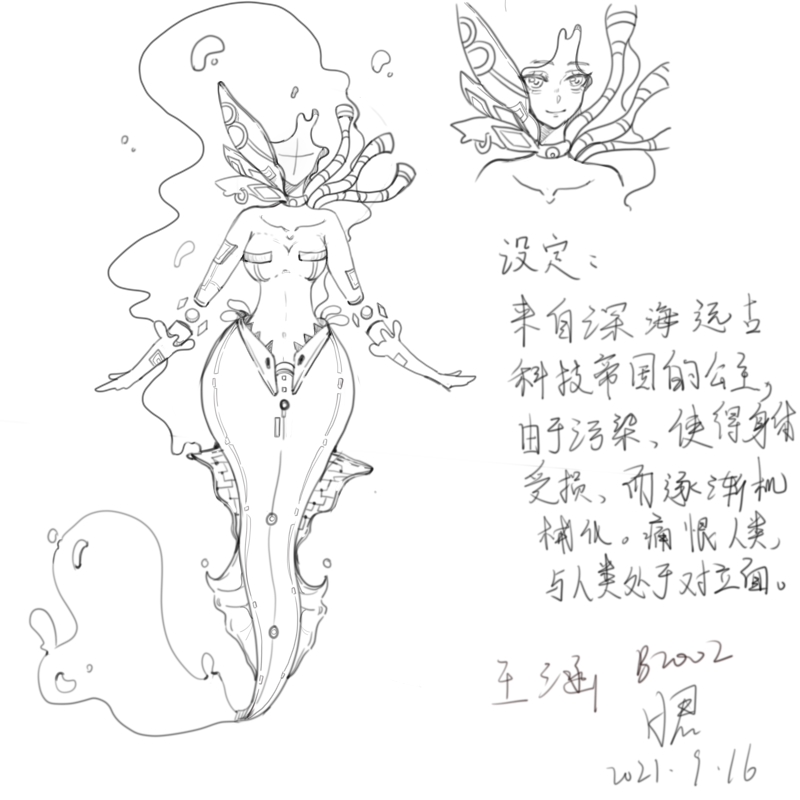 设定：
来自深海远古
科技帝国的公主，
由于污染、使得身体
受损、而逐渐机
械化。痛恨人类，
与人类处于对立面。
王涵 B2002
2021.9.16